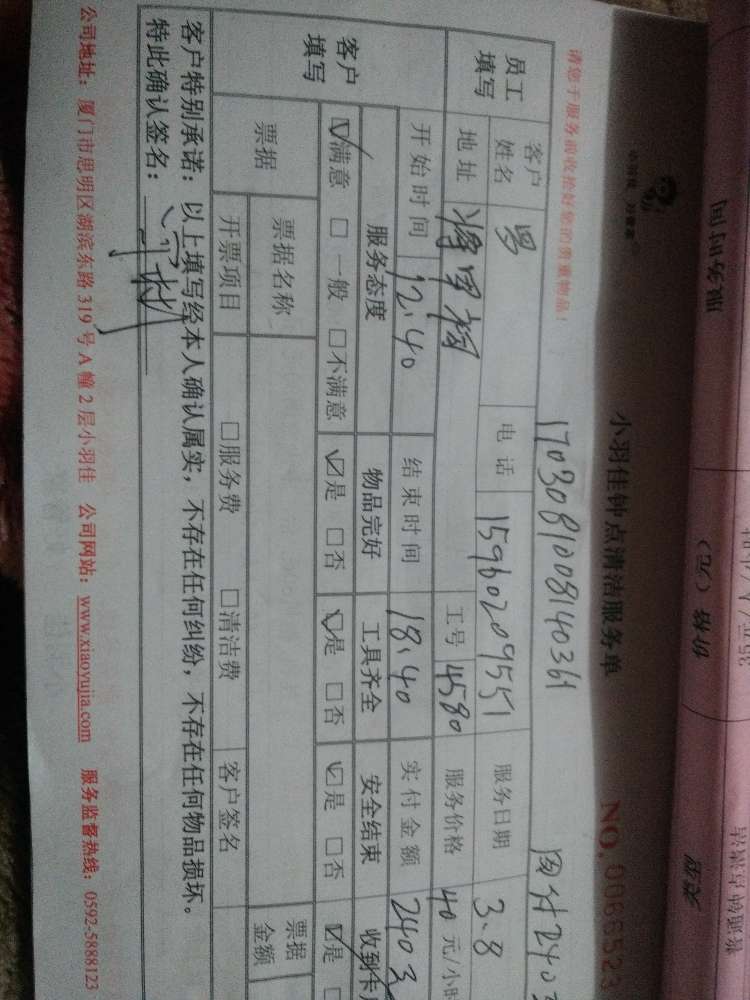 小羽佳钟点清洁服务单
NO. 0066523
170308100814036
请您于服务前收拾好您的贵重物品！
员工填写 客户姓名 罗 电话 15960209551 服务日期 3.8
地址 工号 4580 服务价格 40 元/小时
客户填写 开始时间 12.40 结束时间 18.40 实付金额 240
服务态度 物品完好 工具齐全 安全结束 收到卡
☑满意 □一般 □不满意 ☑是 □否 ☑是 □否 ☑是 □否 ☑是 □
票据 票据名称 票据金额
开票项目 □服务费 □清洁费 客户签名
客户特别承诺：以上填写经本人确认属实，不存在任何纠纷，不存在任何物品损坏。
特此确认签名：
公司地址：厦门市思明区湖滨东路 319 号 A 幢 2 层小羽佳 公司网站：www.xiaoyujia.com 服务监督热线：0592-5888123